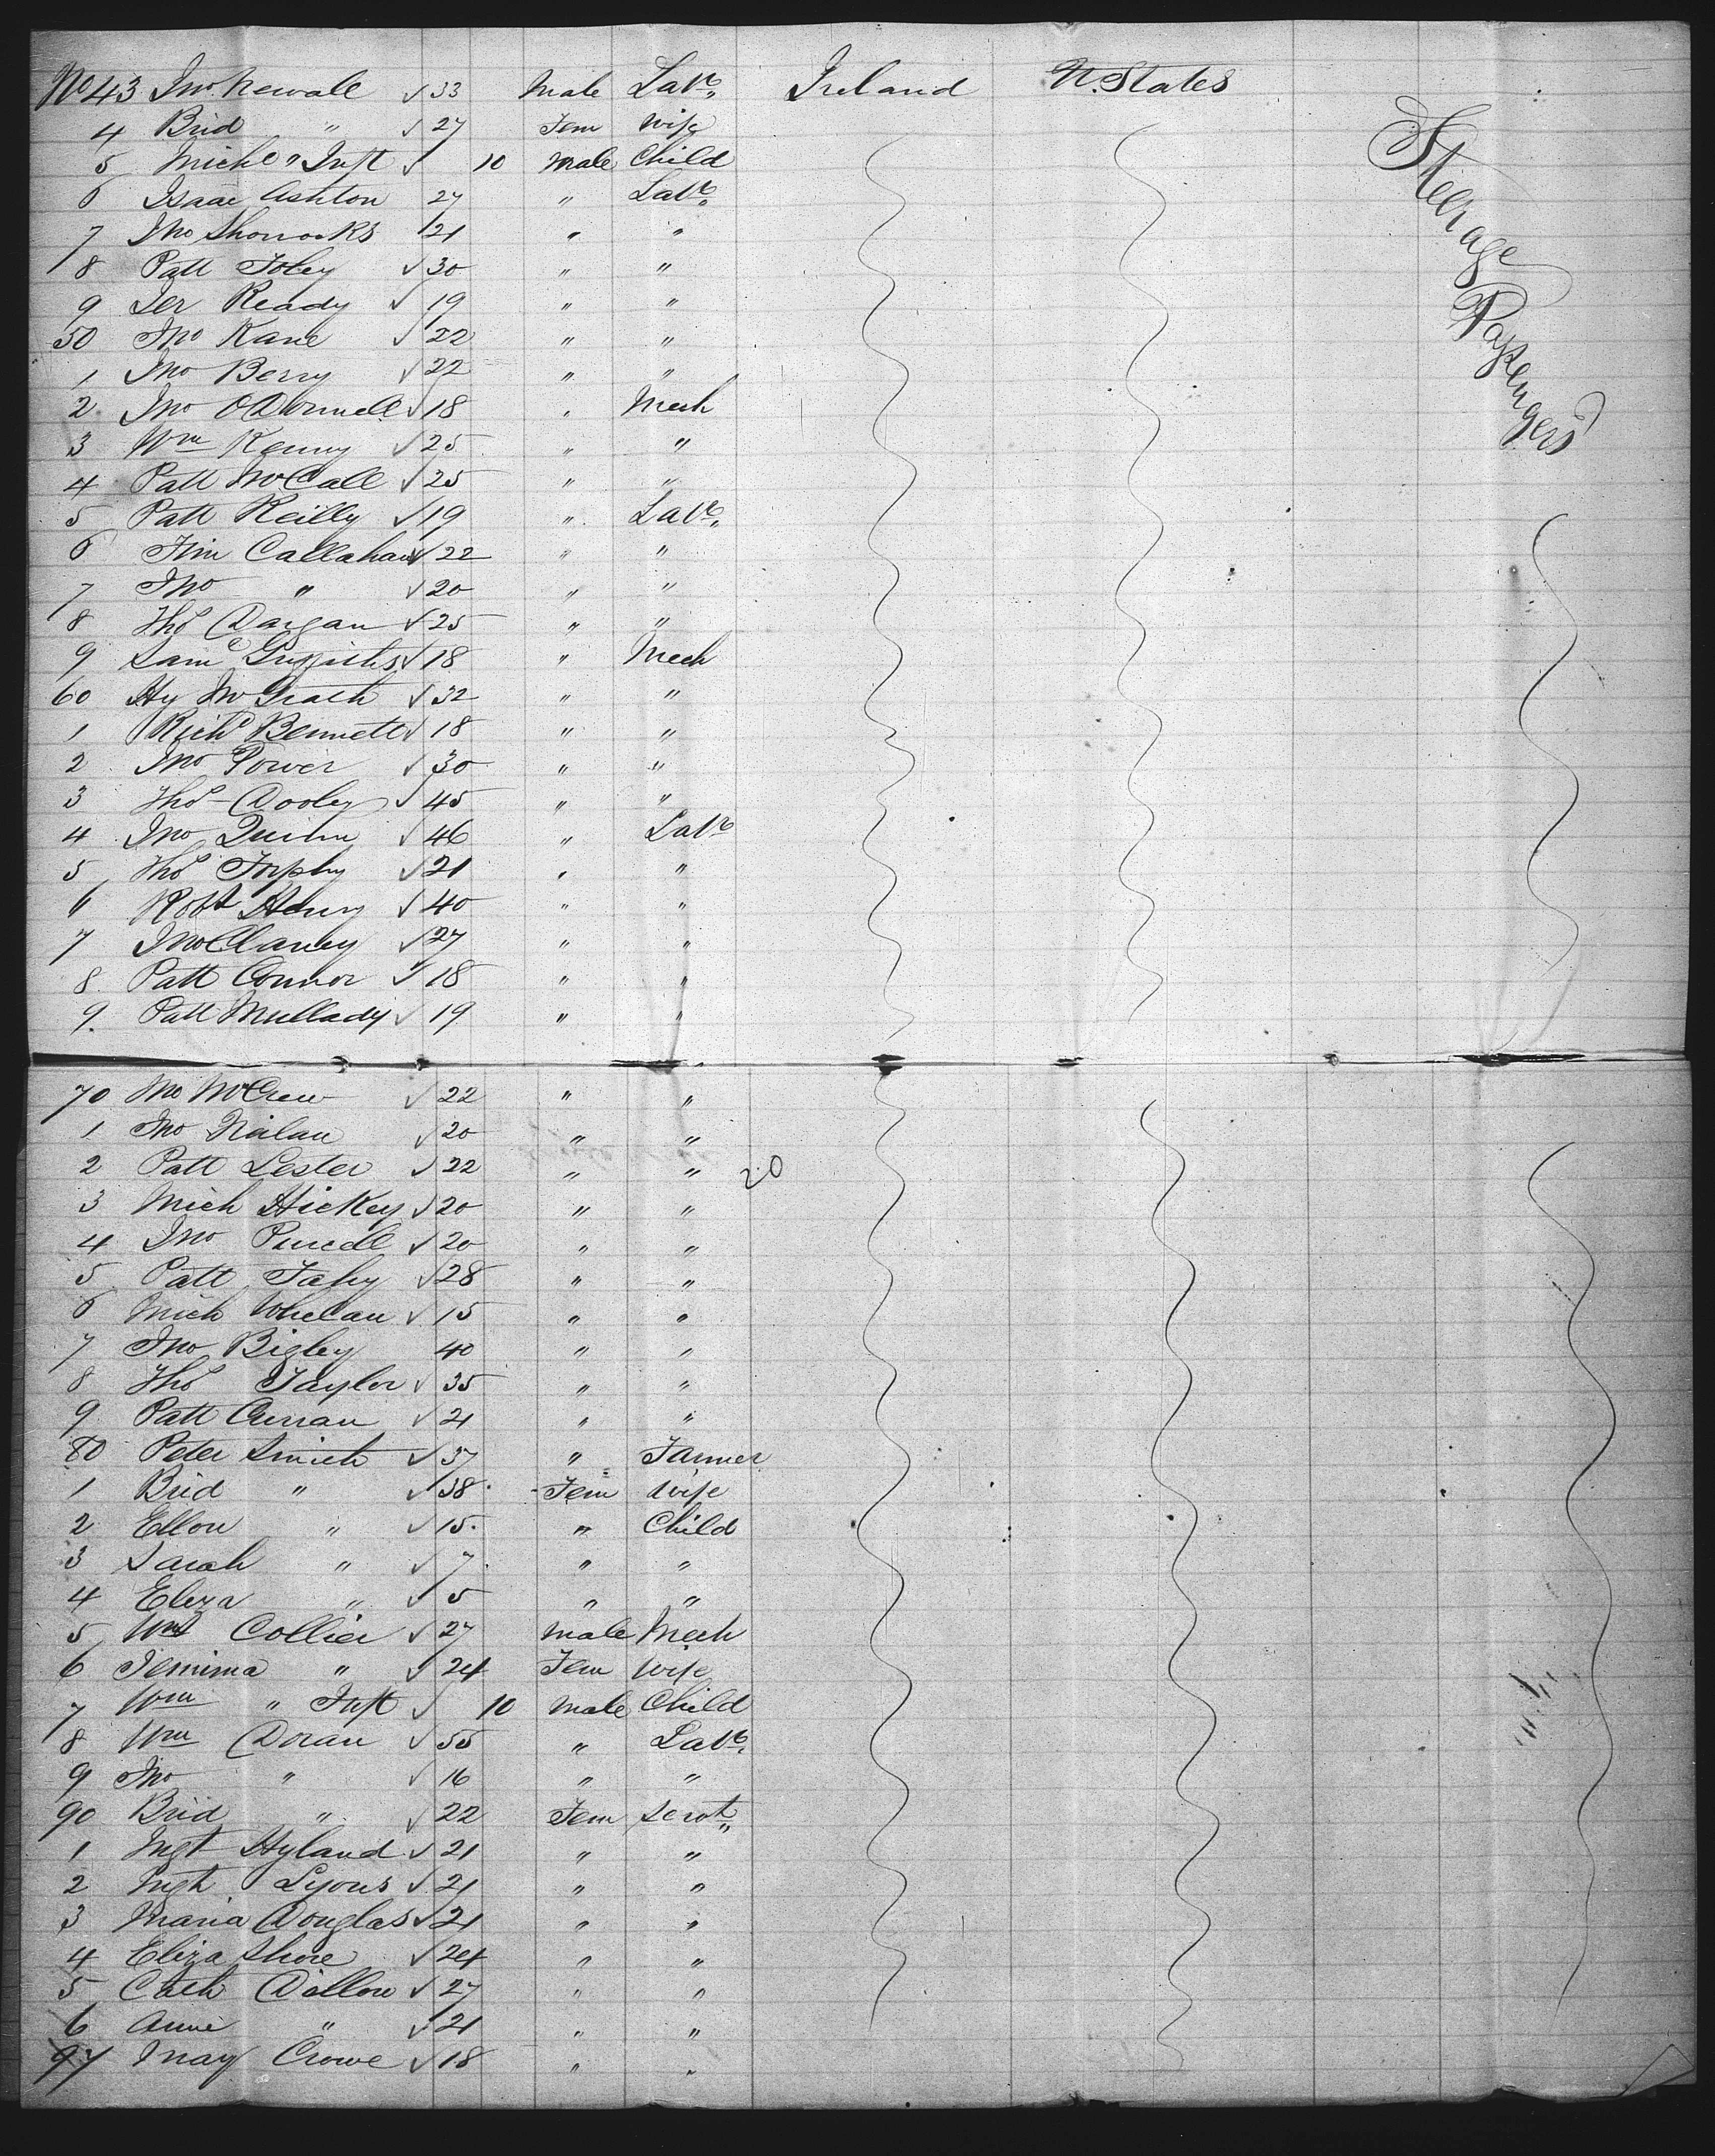 No 43 Jno. Newall √ 33 Male Labr. Ireland U. States
4 Brid " √ 27 Fem wife
5 Michl " Inft √ 10 Male Child
6 Isaac Ashton 27 " Labr.
7 Jno Shorrocks 21 " "
8 Patt Foley √ 30 " "
9 Jer Ready √ 19 " "
50 Jno Kane √ 22 " "
1 Jno Berry √ 22 " "
2 Jno O'Donnell √ 18 " Mech
3 Wm Kenny √ 25 " "
4 Patt McCall √ 25 " "
5 Patt Reilly √ 19 " Labr.
6 Tim Callahan √ 22 " "
7 Jno " √ 20 " "
8 Thos Dargan √ 25 " "
9 Saml Griffiths √ 18 " Mech
60 Hy McGrath √ 32 " "
1 Richd Bennett √ 18 " "
2 Jno Power √ 30 " "
3 Thos Dooley √ 45 " "
4 Jno Quinn √ 46 " Labr
5 Thos Torphy √ 21 " "
6 Robt Henry √ 40 " "
7 Jno Clancy √ 27 " "
8 Patt Connor √ 18 " "
9 Patt Mullady √ 19 " "
Steerage Passengers
70 Jno McCrew √ 22 " "
1 Jno Nialan √ 20 " "
2 Patt Lester √ 22 " " 20
3 Mich Hickey √ 20 " "
4 Jno Purcell √ 20 " "
5 Patt Fahy √ 28 " "
6 Mich Whelan √ 15 " "
7 Jno Bigley 40 " "
8 Thos Taylor √ 35 " "
9 Patt Curran √ 21 " "
80 Peter Smith √ 37 " Farmer
1 Brid " √ 38 Fem wife
2 Ellen " √ 15 " Child
3 Sarah " √ 7 " "
4 Eliza " √ 5 " "
5 Wm Collier √ 27 Male Mech
6 Jemima " √ 24 Fem Wife
7 Wm " Inft √ 10 Male Child
8 Wm Doran √ 55 " Labr.
9 Jno " √ 16 " "
90 Brid " √ 22 Fem Servt.
1 Mgt Hyland √ 21 " "
2 Mgt Lyons √ 21 " "
3 Maria Douglas √ 21 " "
4 Eliza Shore √ 24 " "
5 Cath Dillon √ 27 " "
6 Anne " √ 21 " "
97 Mary Crowe √ 18 " "